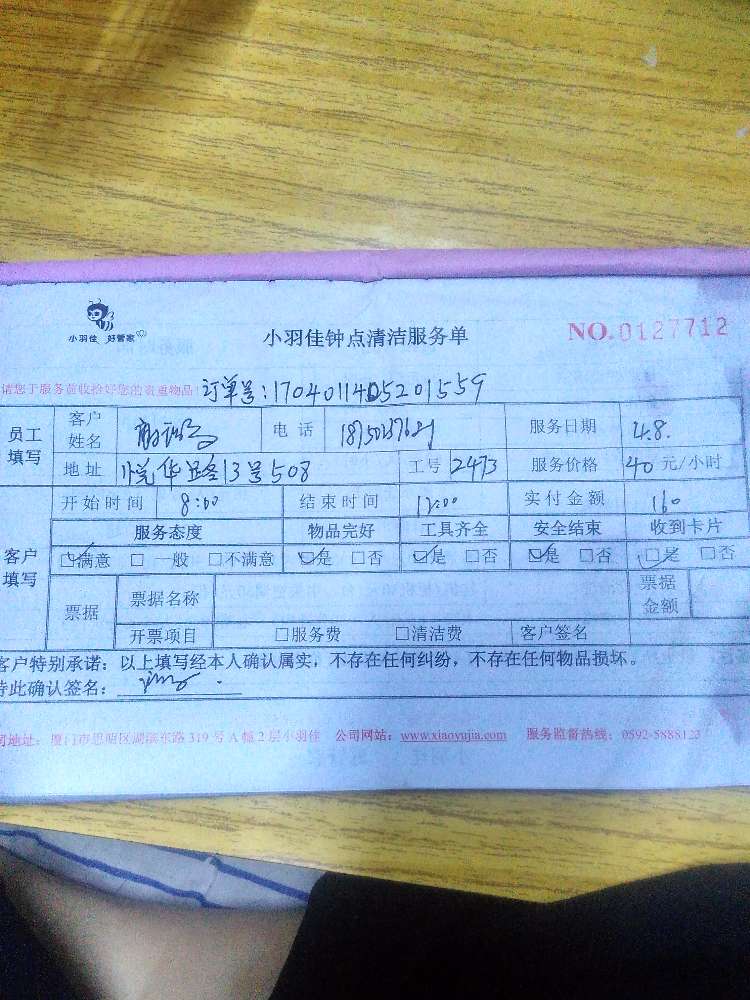 小羽佳 好管家
小羽佳钟点清洁服务单
NO.0127712
请您于服务前收拾好您的贵重物品
订单号:17040114052015​59
员工填写 客户姓名 电话 服务日期 4.8.
地址 悦华路13号508 工号 2473 服务价格 40元/小时
开始时间 8:00 结束时间 12:00 实付金额 160
客户填写 服务态度 物品完好 工具齐全 安全结束 收到卡片
☑满意 □一般 □不满意 ☑是 □否 ☑是 □否 ☑是 □否 ☑是 □否
票据 票据名称 票据金额
开票项目 □服务费 □清洁费 客户签名
客户特别承诺:以上填写经本人确认属实,不存在任何纠纷,不存在任何物品损坏。
特此确认签名:
司地址:厦门市思明区湖滨东路319号A幢2层小羽佳 公司网站:www.xiaoyujia.com 服务监督热线:0592-5888123